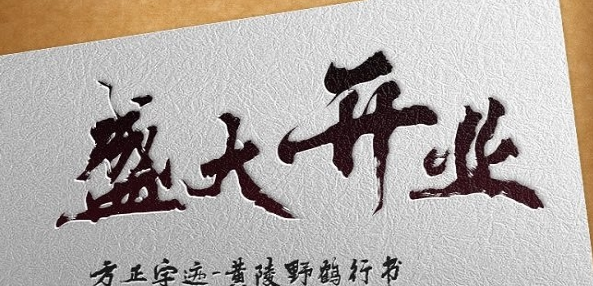 盛大开业
方正字迹-黄陵野鹤行书